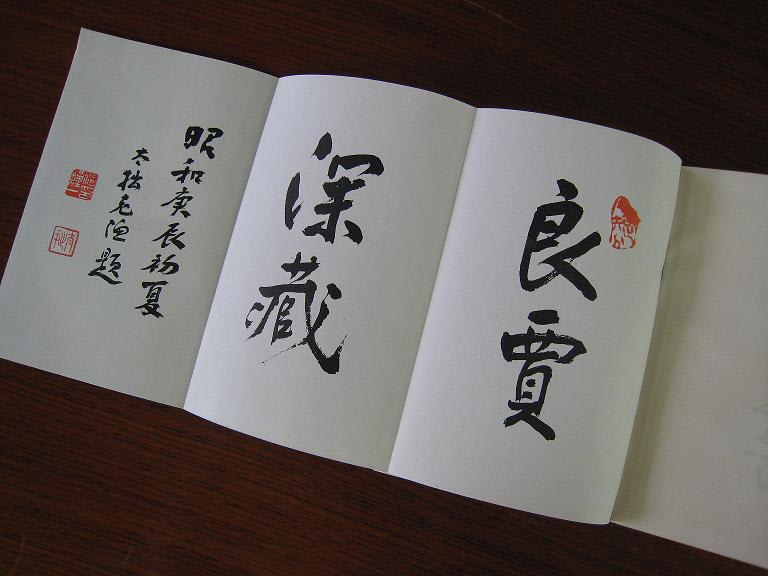 良賈
深藏
昭和庚辰初夏
太拙老漁題